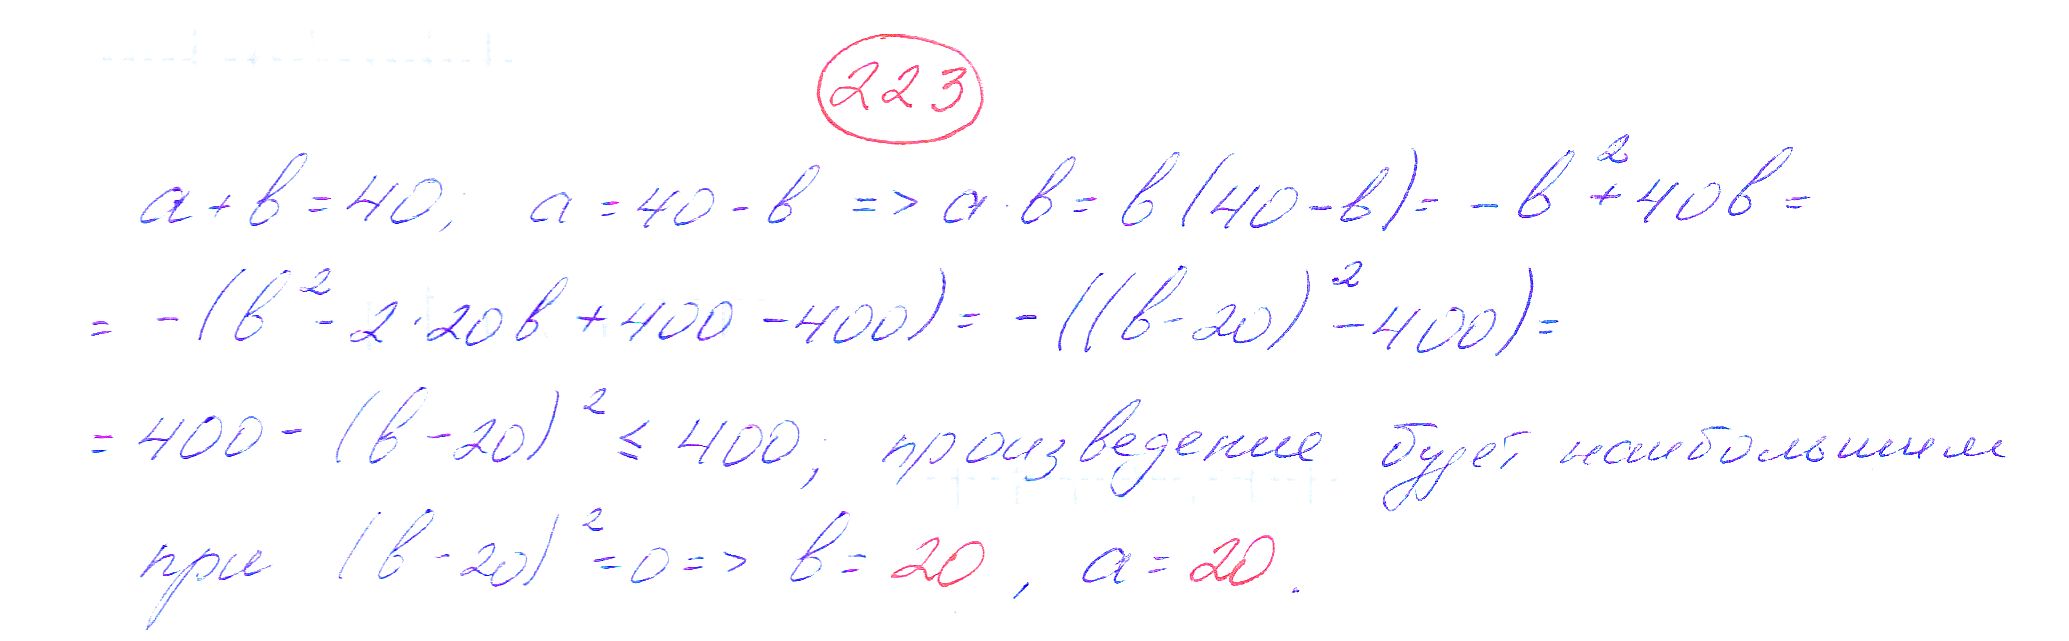 223
a+b=40; a=40-b => a·b=b(40-b)=-b²+40b=
=-(b²-2·20b+400-400)=-((b-20)²-400)=
=400-(b-20)²≤400; произведение будет наибольшим
при (b-20)²=0=> b=20, a=20.